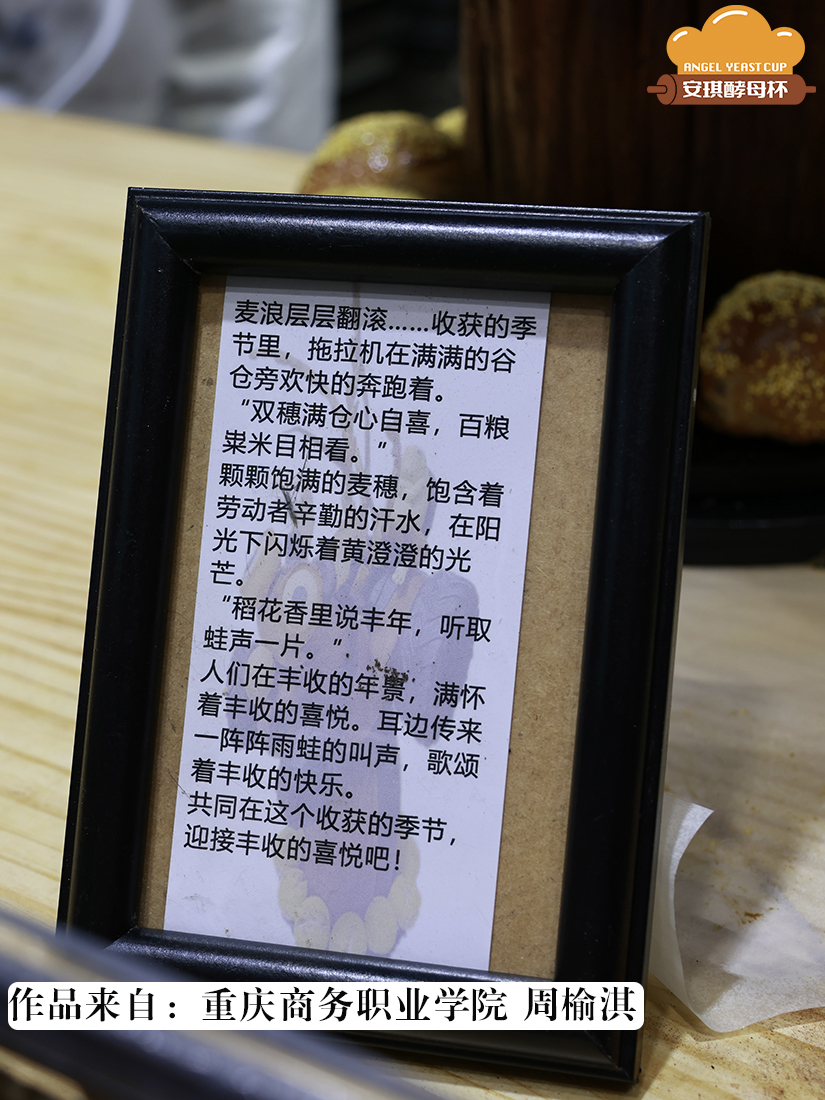 ANGEL YEAST CUP
安琪酵母杯
麦浪层层翻滚……收获的季
节里，拖拉机在满满的谷
仓旁欢快的奔跑着。
“双穗满仓心自喜，百粮
粜米目相看。”
颗颗饱满的麦穗，饱含着
劳动者辛勤的汗水，在阳
光下闪烁着黄澄澄的光
芒。
“稻花香里说丰年，听取
蛙声一片。”
人们在丰收的年景，满怀
着丰收的喜悦。耳边传来
一阵阵雨蛙的叫声，歌颂
着丰收的快乐。
共同在这个收获的季节，
迎接丰收的喜悦吧！
作品来自：重庆商务职业学院 周榆淇